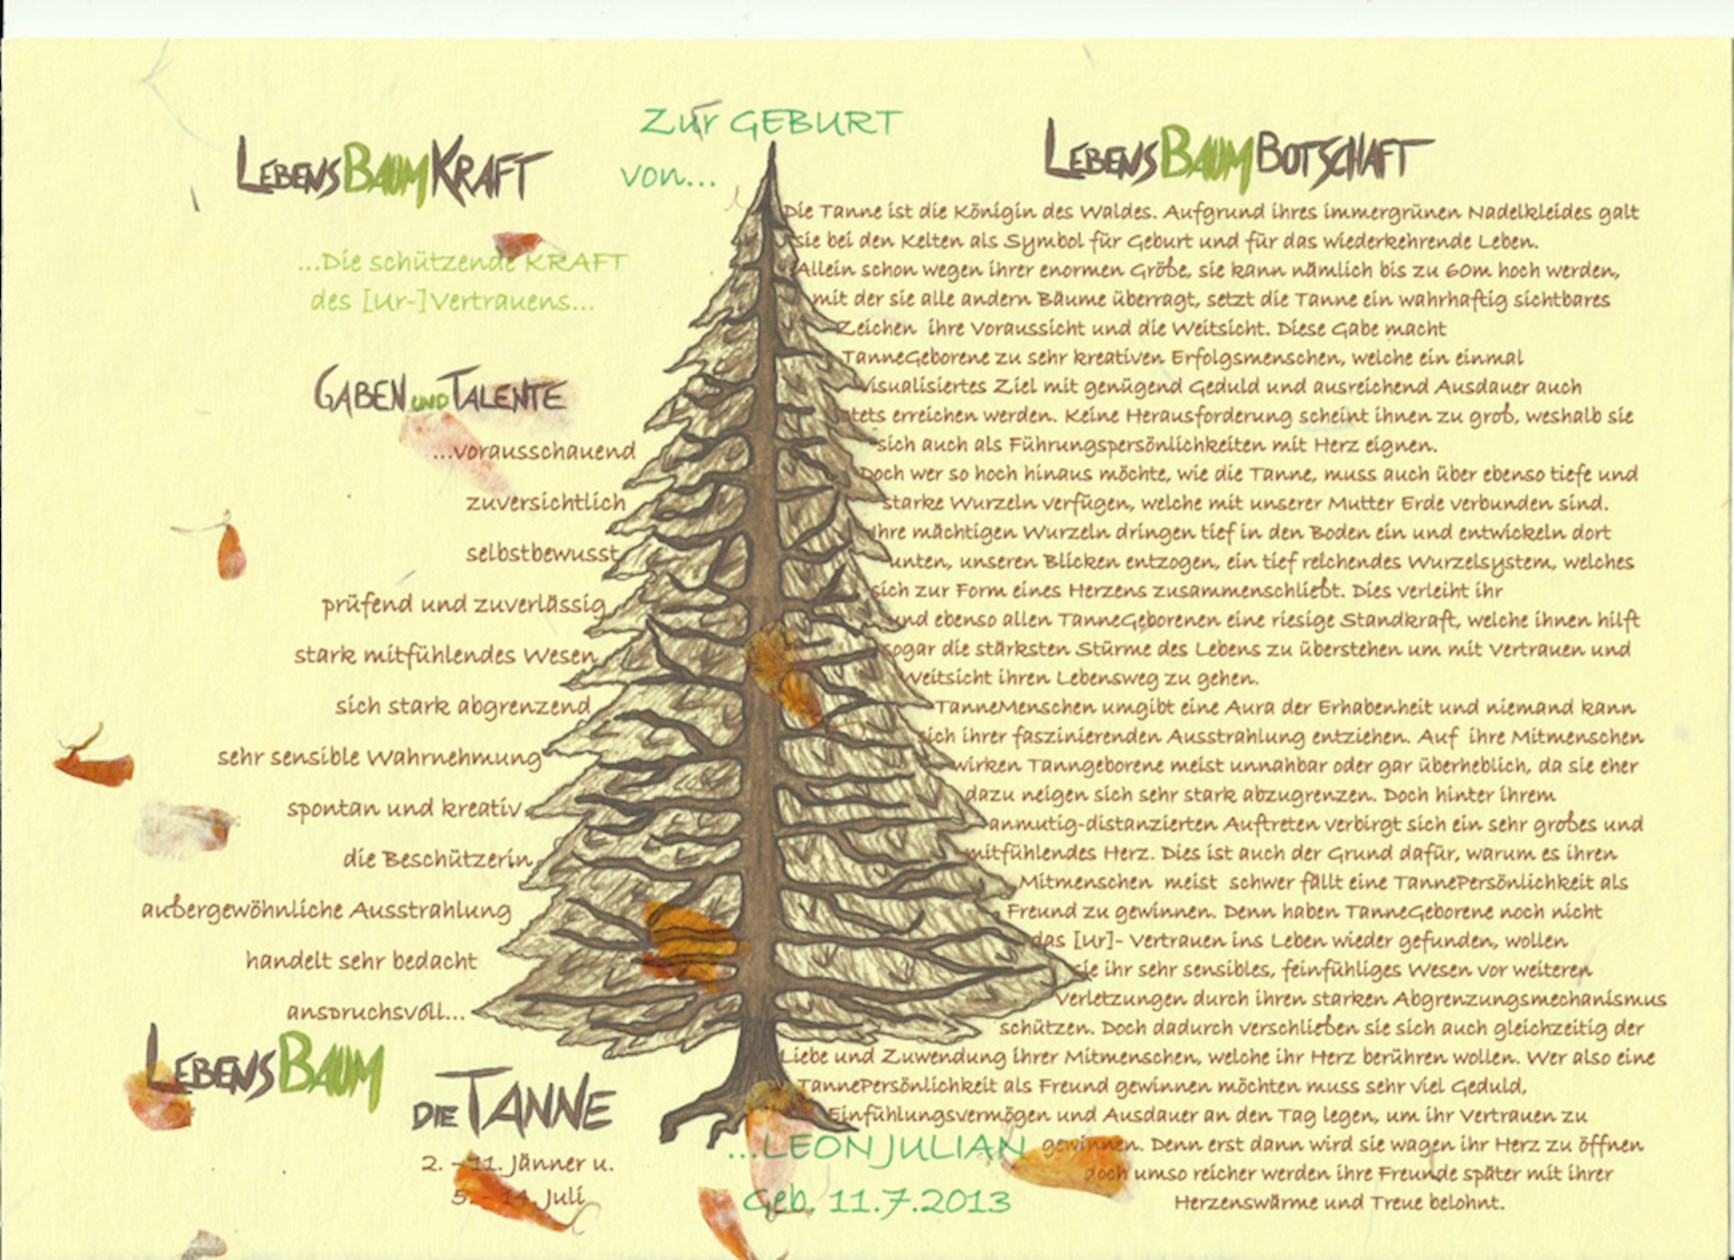 Zur GEBURT
von...
LEBENSBAUMKRAFT
...Die schützende KRAFT
des [Ur-]Vertrauens...
GABEN UND TALENTE
...vorausschauend
zuversichtlich
selbstbewusst
prüfend und zuverlässig
stark mitfühlendes Wesen
sich stark abgrenzend
sehr sensible Wahrnehmung
spontan und kreativ
die Beschützerin
außergewöhnliche Ausstrahlung
handelt sehr bedacht
anspruchsvoll...
LEBENSBAUM
DIE TANNE
2. - 11. Jänner u.
5. - 14. Juli
LEBENSBAUMBOTSCHAFT
Die Tanne ist die Königin des Waldes. Aufgrund ihres immergrünen Nadelkleides galt
sie bei den Kelten als Symbol für Geburt und für das wiederkehrende Leben.
Allein schon wegen ihrer enormen Größe, sie kann nämlich bis zu 60m hoch werden,
mit der sie alle andern Bäume überragt, setzt die Tanne ein wahrhaftig sichtbares
Zeichen ihre Voraussicht und die Weitsicht. Diese Gabe macht
TanneGeborene zu sehr kreativen Erfolgsmenschen, welche ein einmal
visualisiertes Ziel mit genügend Geduld und ausreichend Ausdauer auch
stets erreichen werden. Keine Herausforderung scheint ihnen zu groß, weshalb sie
sich auch als Führungspersönlichkeiten mit Herz eignen.
Doch wer so hoch hinaus möchte, wie die Tanne, muss auch über ebenso tiefe und
starke Wurzeln verfügen, welche mit unserer Mutter Erde verbunden sind.
Ihre mächtigen Wurzeln dringen tief in den Boden ein und entwickeln dort
unten, unseren Blicken entzogen, ein tief reichendes Wurzelsystem, welches
sich zur Form eines Herzens zusammenschließt. Dies verleiht ihr
und ebenso allen TanneGeborenen eine riesige Standkraft, welche ihnen hilft
sogar die stärksten Stürme des Lebens zu überstehen um mit Vertrauen und
Weitsicht ihren Lebensweg zu gehen.
TanneMenschen umgibt eine Aura der Erhabenheit und niemand kann
sich ihrer faszinierenden Ausstrahlung entziehen. Auf ihre Mitmenschen
wirken Tanngeborene meist unnahbar oder gar überheblich, da sie eher
dazu neigen sich sehr stark abzugrenzen. Doch hinter ihrem
anmutig-distanzierten Auftreten verbirgt sich ein sehr großes und
mitfühlendes Herz. Dies ist auch der Grund dafür, warum es ihren
Mitmenschen meist schwer fällt eine TannePersönlichkeit als
Freund zu gewinnen. Denn haben TanneGeborene noch nicht
das [Ur]- Vertrauen ins Leben wieder gefunden, wollen
sie ihr sehr sensibles, feinfühliges Wesen vor weiteren
Verletzungen durch ihren starken Abgrenzungsmechanismus
schützen. Doch dadurch verschließen sie sich auch gleichzeitig der
Liebe und Zuwendung ihrer Mitmenschen, welche ihr Herz berühren wollen. Wer also eine
TannePersönlichkeit als Freund gewinnen möchten muss sehr viel Geduld,
Einfühlungsvermögen und Ausdauer an den Tag legen, um ihr Vertrauen zu
gewinnen. Denn erst dann wird sie wagen ihr Herz zu öffnen
doch umso reicher werden ihre Freunde später mit ihrer
Herzenswärme und Treue belohnt.
...LEON JULIAN
Geb. 11.7.2013